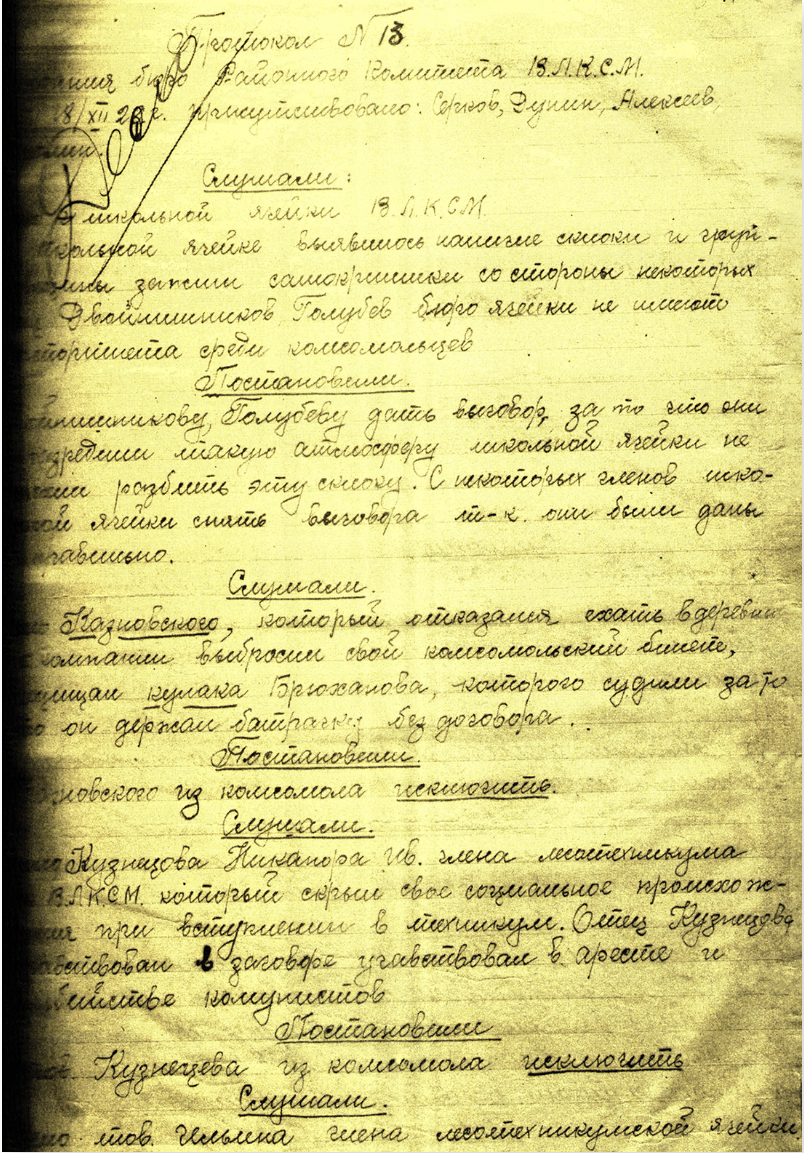 Протокол N 13.
бюро Районного Комитета В.Л.К.С.М.
8/XII 28 г. присутствовало: Серков, Дунин, Алексеев,
Слушали:
школьной ячейки В.Л.К.С.М.
школьной ячейке выявилось наличие склоки и груп-
зажим самокритики со стороны некоторых
Двойнишников Голубев бюро ячейки не имеют
авторитета среди комсомольцев
Постановили.
Голубеву дать выговор, за то что они
такую атмосферу школьной ячейки не
розбить эту склоку. С некоторых членов шко-
ной ячейки снять выговора т-к. они были даны
правильно.
Слушали.
Казновского, который отказался ехать в деревню
компании выбросил свой комсомольский билет,
кулака Брюханова, которого судили за то
он держал батрачку без договора.
Постановили.
новского из комсомола исключить.
Слушали.
Кузнецова Никанора Ив. члена лесотехникума
В.Л.К.С.М. который скрыл свое социальное происхож-
при вступлении в техникум. Отец Кузнецова
в заговоре учавствовал в аресте и
комунистов
Постановили
Кузнецева из комсомола исключить
Слушали.
тов. Ильина члена лесотехникумской ячейки